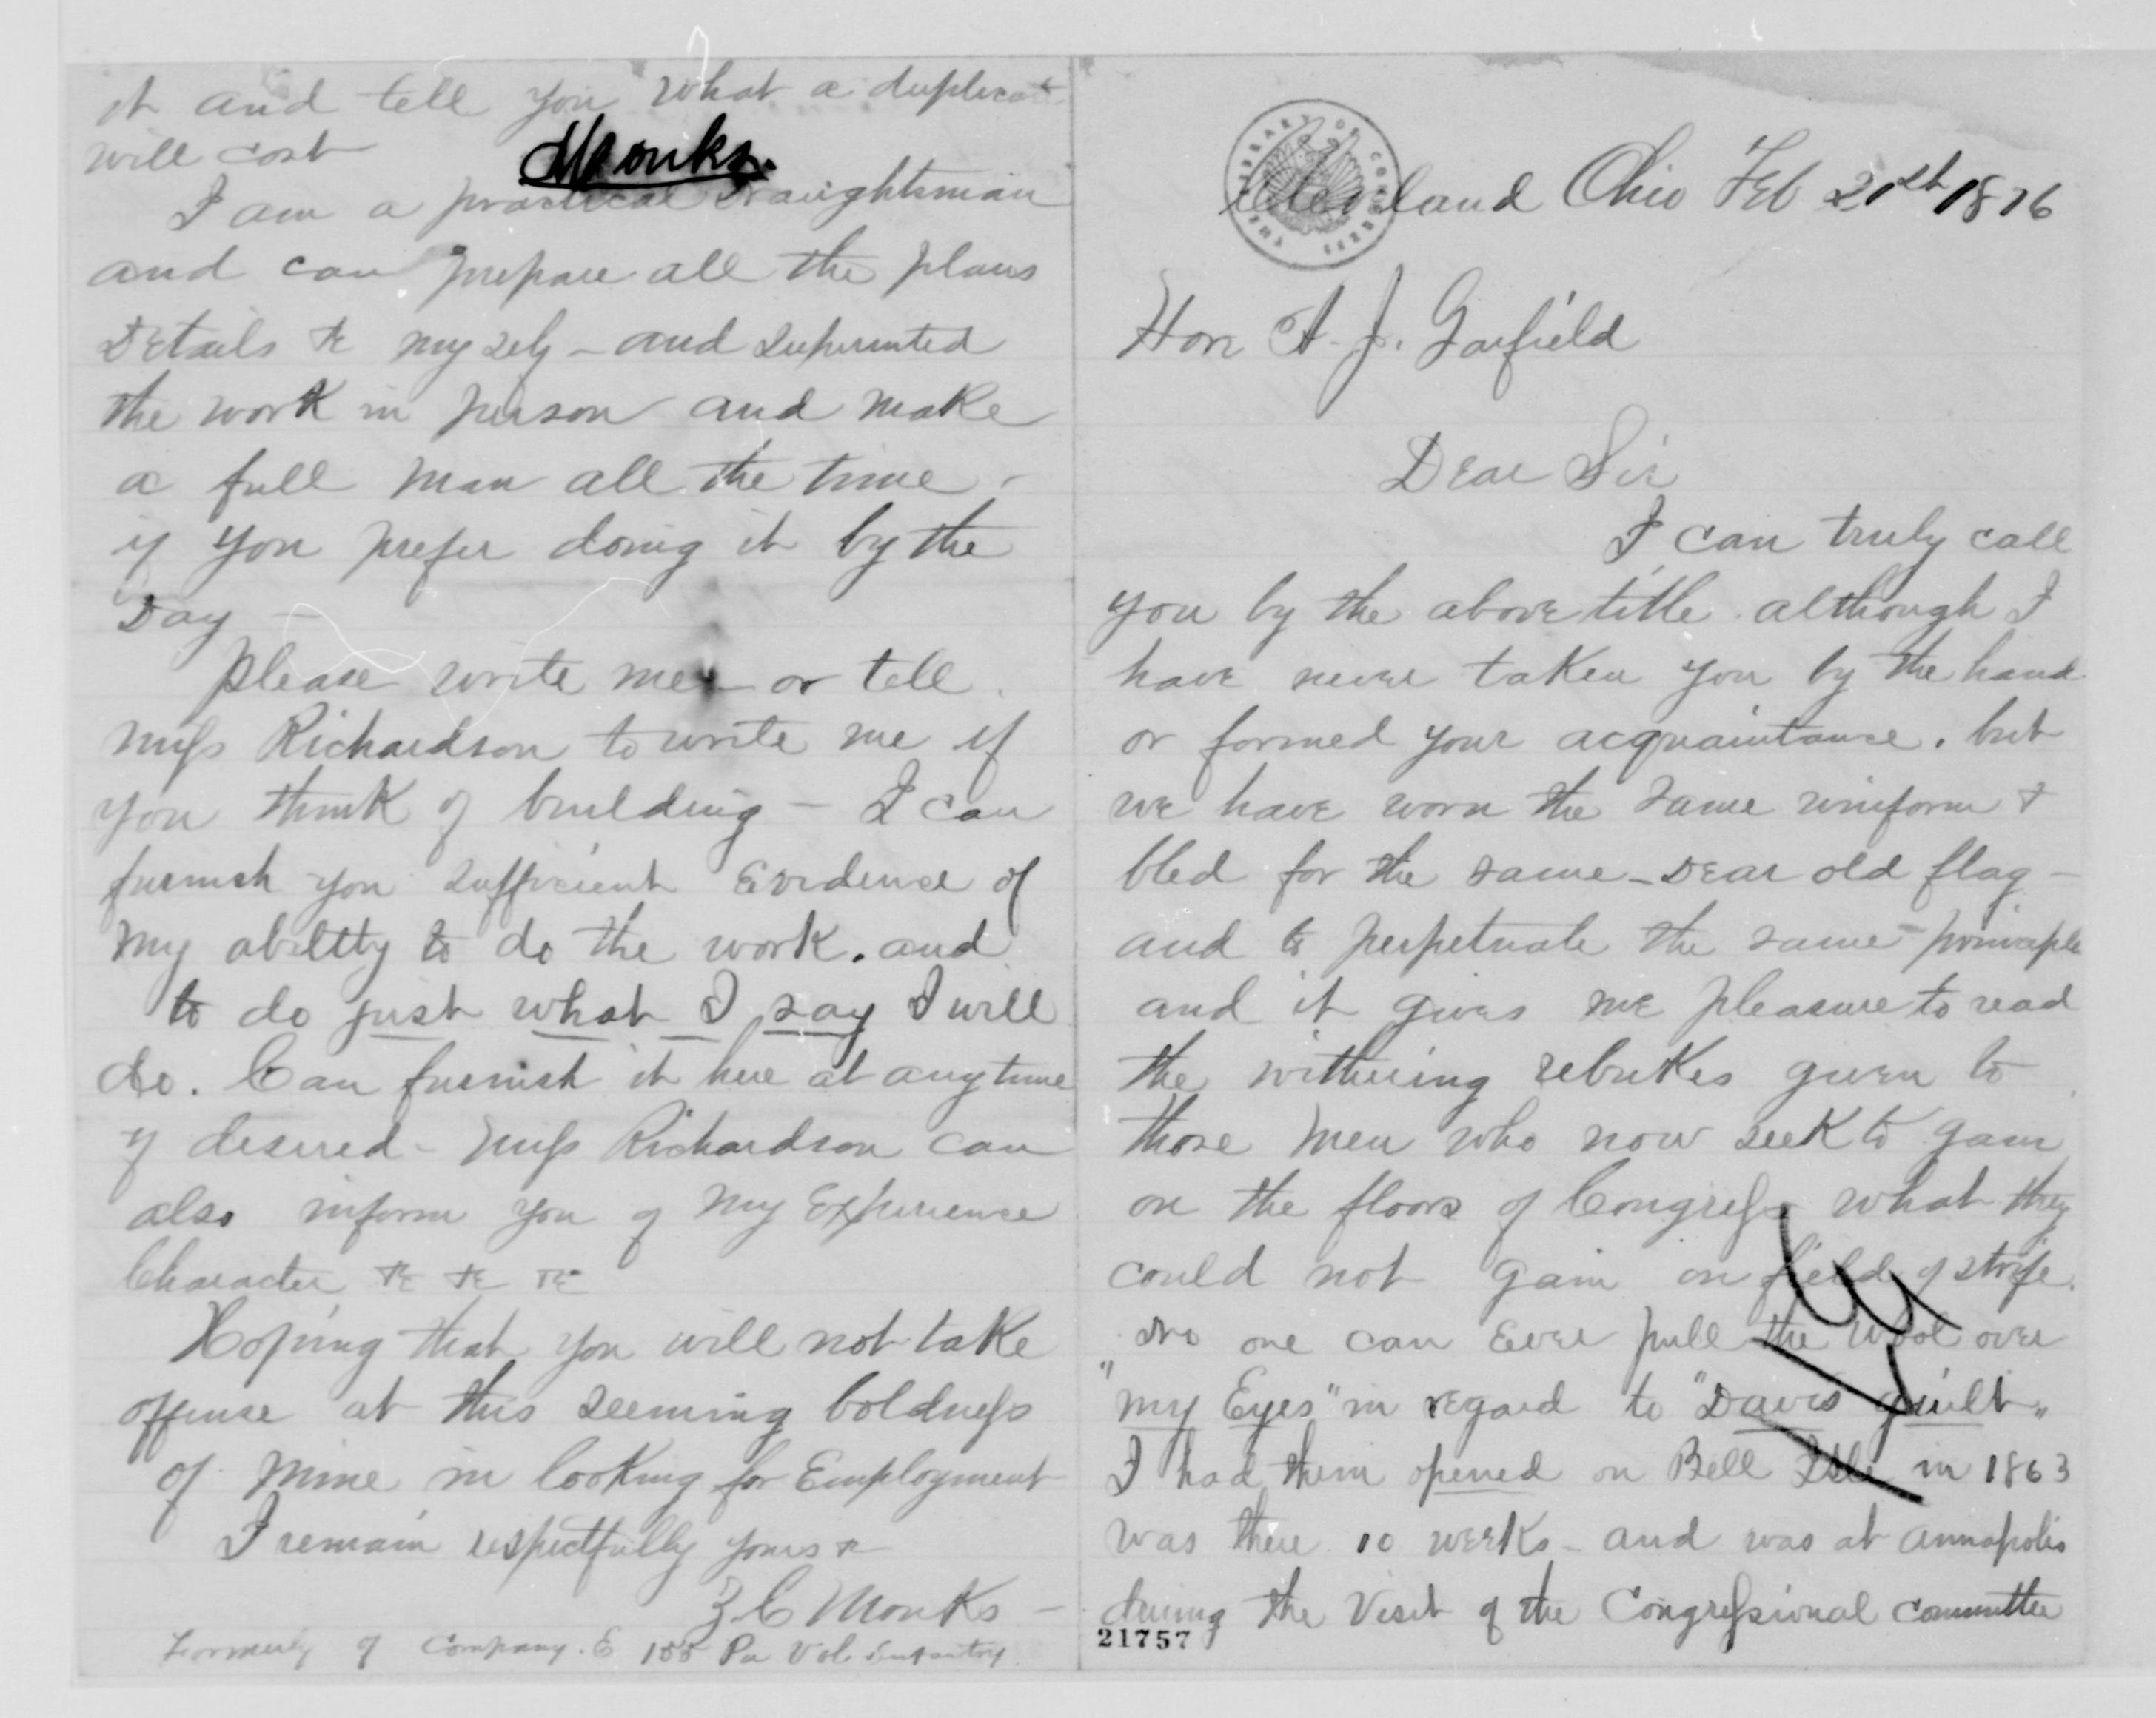 it and tell you what a duplicat
will cost
Monks.
I am a practical draughtsman
and can prepare all the plans
Details &c my self - and superinted
the work in person and make
a full man all the time -
if you prefer doing it by the
Day -
please write me - or tell
miss Richardson to write me if
you think of building - I can
furnish you sufficient Evidence of
my ability to do the work. and
to do just what I say I will
do. Can furnish it here at any time
if desired - miss Richardson can
also inform you of my Experience
Character &c &c &c
Hoping that you will not take
offense at this seeming boldness
of mine in looking for Employment
I remain respectfully yours &c
Z C Monks -
Formerly of Company. E 155 Pa Vol Infantry.
Cleveland Ohio Feb 21st 1876
Hon A. J. Garfield
Dear Sir
I can truly call
you by the above title. although I
have never taken you by the hand
or formed your acquaintance. but
we have worn the same uniform &
bled for the same - Dear old flag -
and to perpetuate the same principle
and it gives me pleasure to read
the withering rebukes given to
those men who now seek to gain
on the floors of Congress what they
could not gain on field of strife.
No one can Ever pull the wool over
"my Eyes" in regard to "Davis guilt"
I had them opened on Bell Isle in 1863
was there 10 weeks - and was at annapolis
during the Visit of the Congressional committee
21757